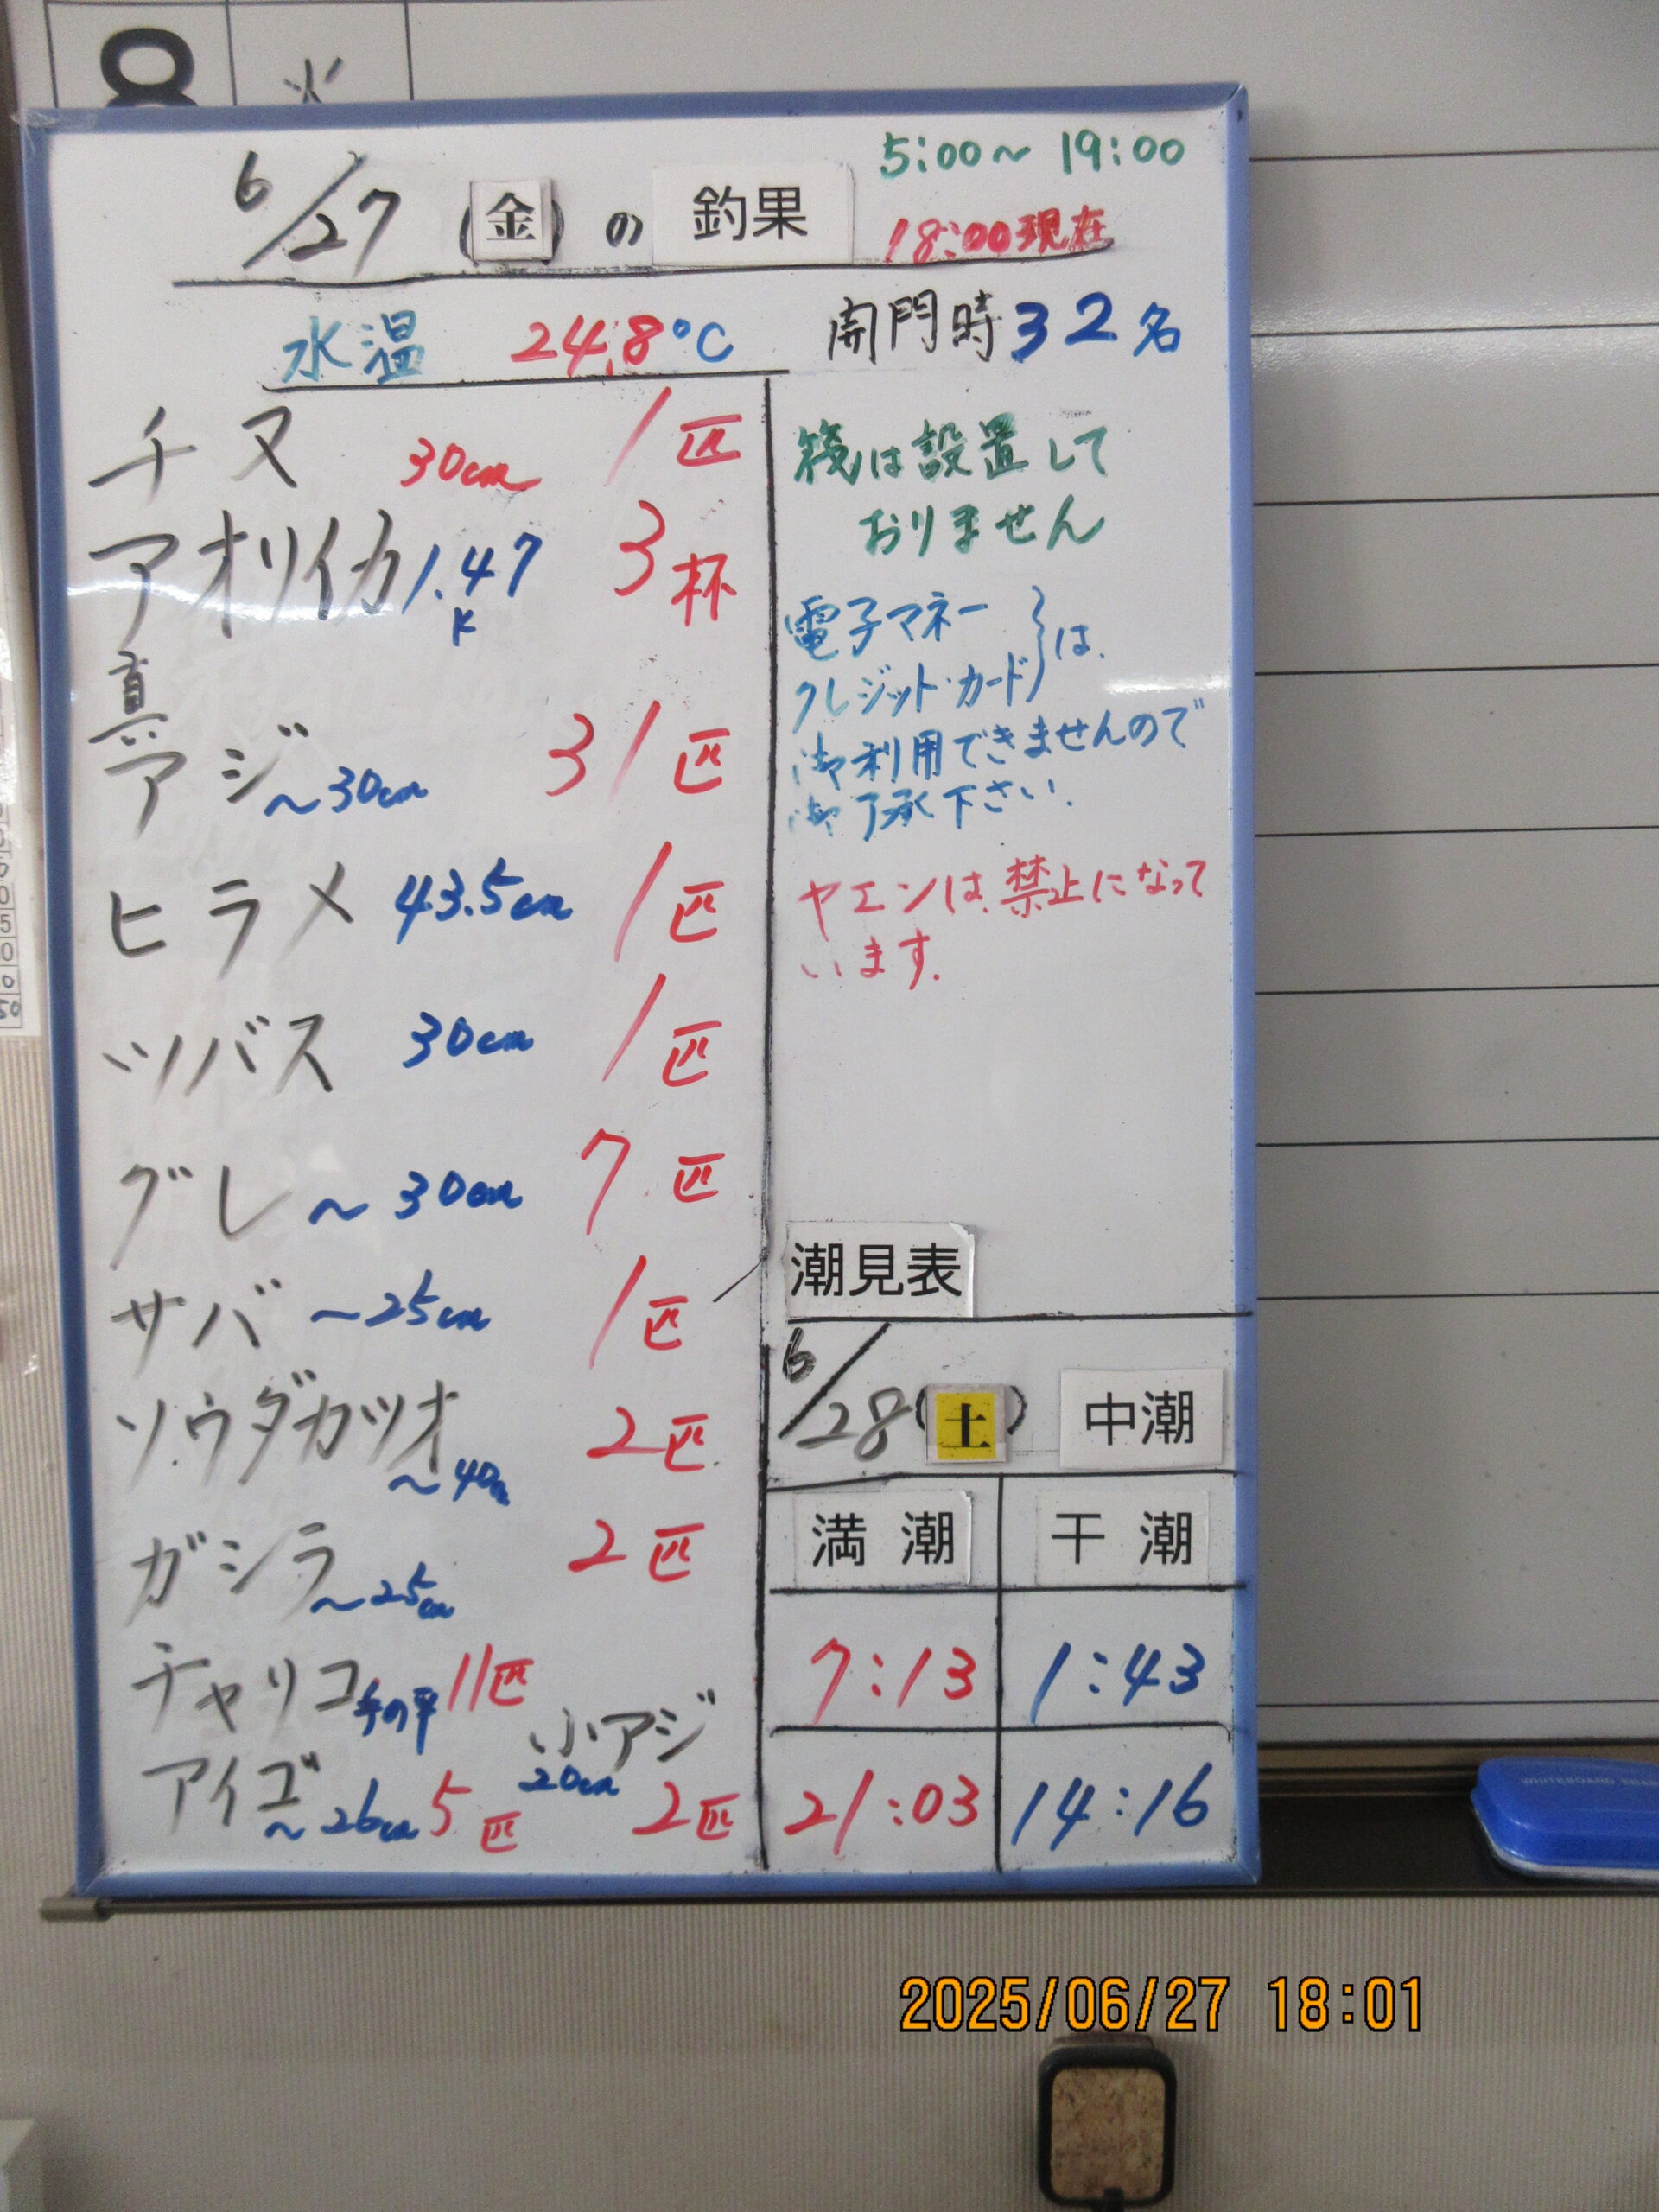 8 火
5:00～19:00
6/27 (金) の 釣果
18:00現在
水温 24.8℃
開門時32名
チヌ 30cm 1匹
アオリイカ 1.47K 3杯
真アジ ～30cm 31匹
ヒラメ 43.5cm 1匹
ツバス 30cm 1匹
グレ ～30cm 7匹
サバ ～25cm 1匹
ソウダカツオ ～40cm 2匹
ガシラ ～25cm 2匹
チャリコ 手の平 11匹
アイゴ ～26cm 5匹
小アジ 20cm 2匹
筏は設置して
おりません
電子マネー
クレジット・カード}は
御利用できませんので
御了承下さい.
ヤエンは禁止になって
います.
潮見表
6/28 (土) 中潮
満潮 干潮
7:13 1:43
21:03 14:16
2025/06/27 18:01